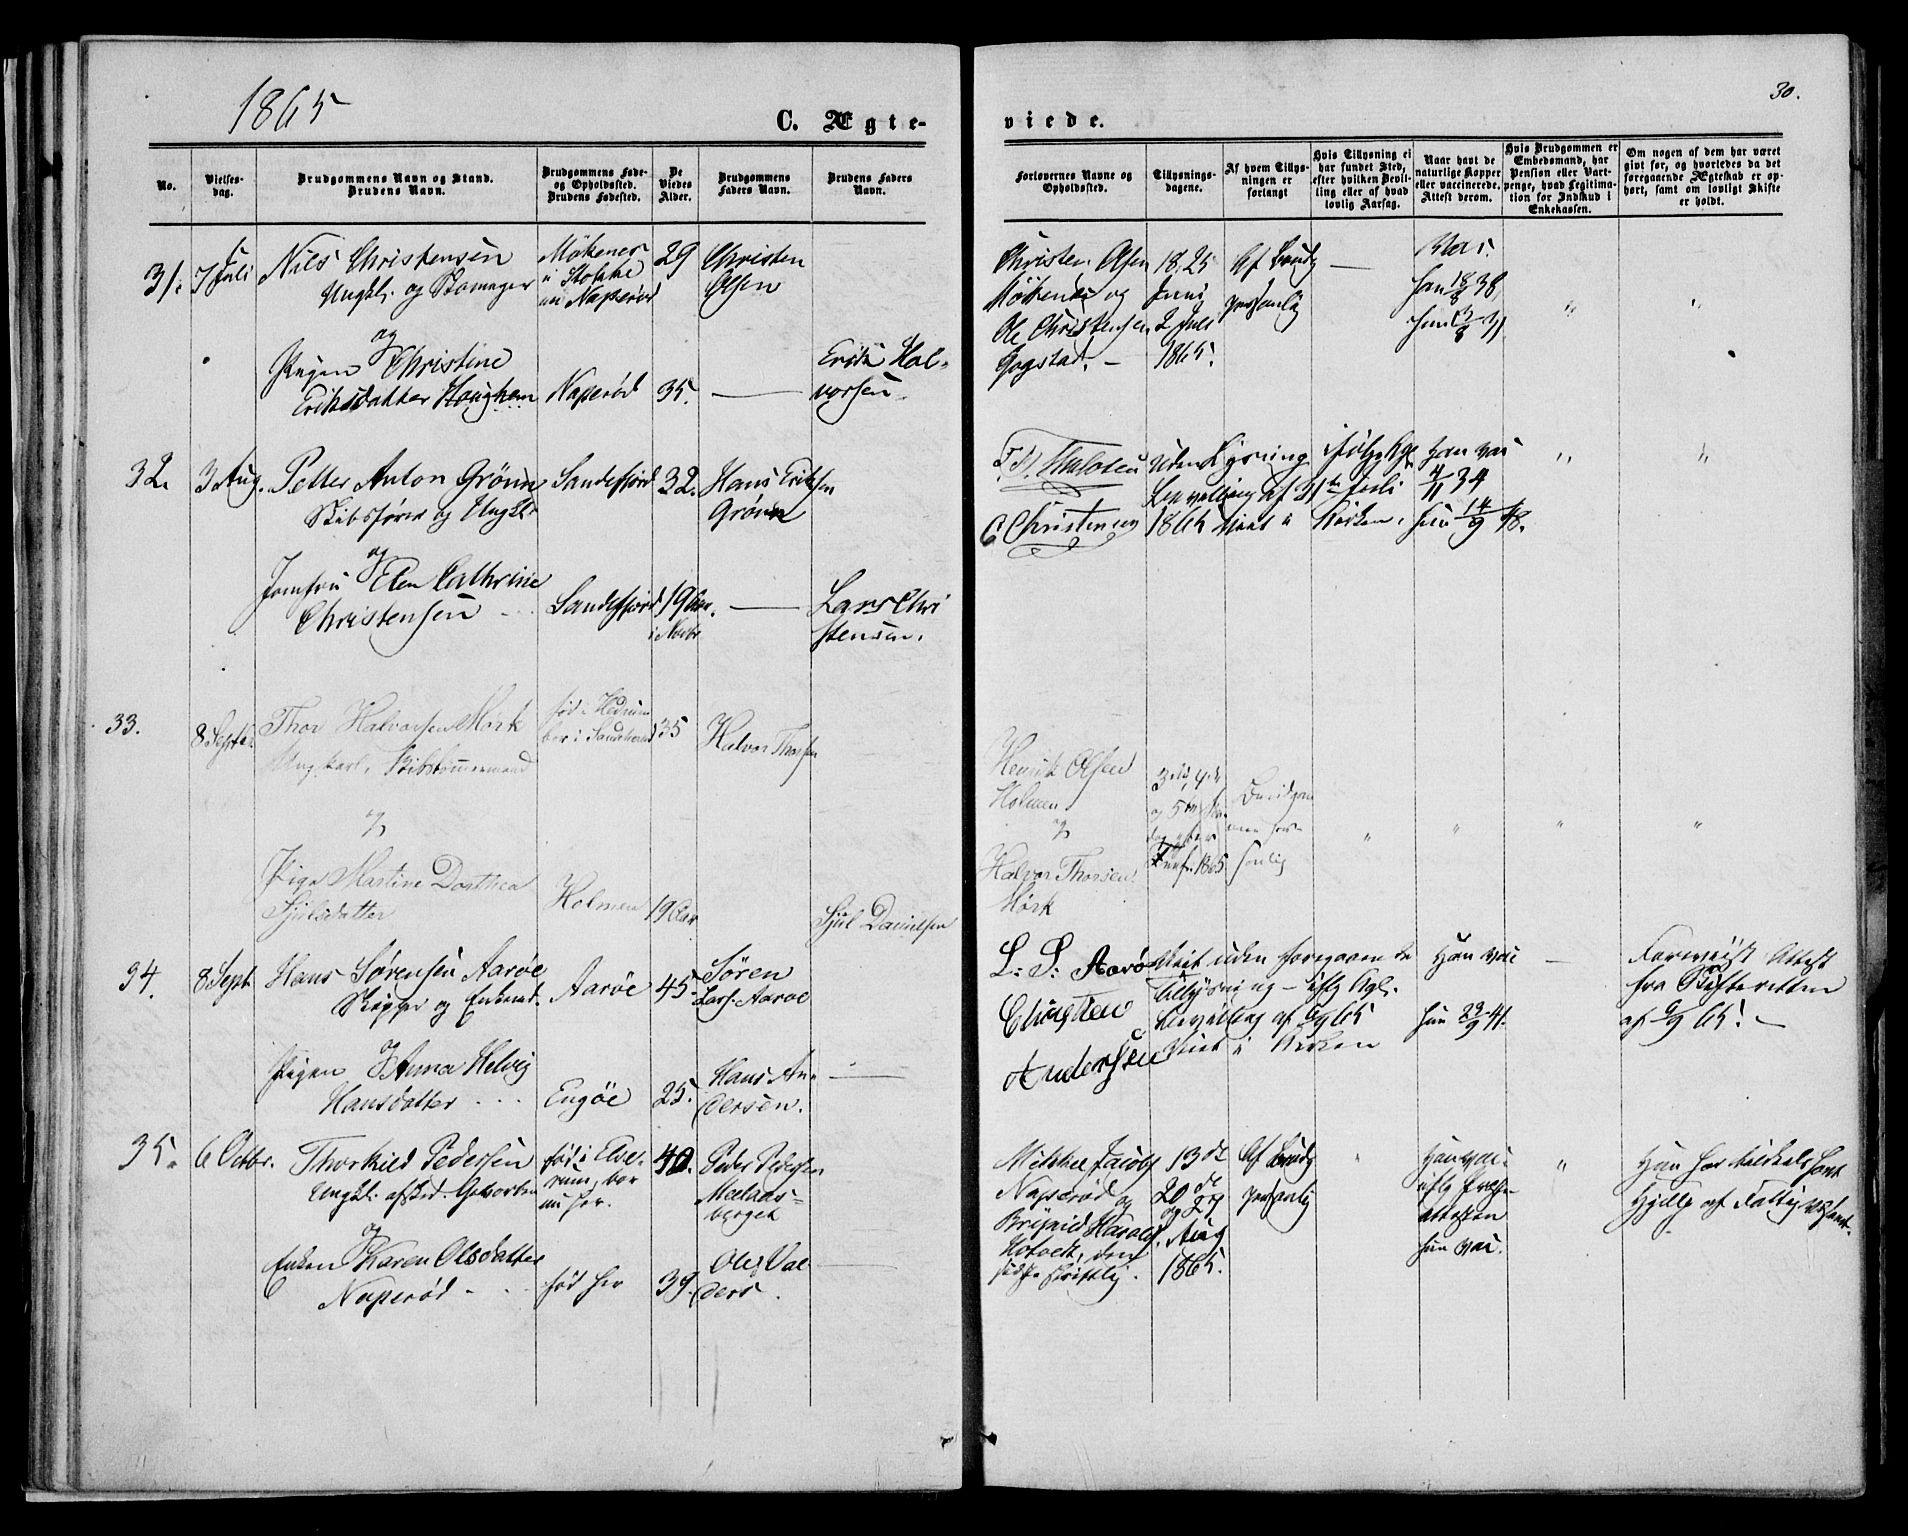 1865
C. Ægte-
viede.
30.
No.
Vielses-
dag.
Brudgommens Navn og Stand.
Brudens Navn.
Brudgommens Føde-
og Opholdssted.
Brudens Fødested.
De
Viedes
Alder.
Brudgommens
Faders Navn.
Brudens Faders
Navn.
Forlovernes Navne og
Opholdssted.
Tillysnings-
dagene.
Af hvem Tillys-
ningen er
forlangt
Hvis Tillysning ei
har fundet Sted,
efter hvilken Bevil-
ling eller af hvad
lovlig Aarsag.
Naar havt de
naturlige Kopper
eller vaccinerede.
Attest derom.
Hvis Brudgommen er
Embedsmand, har
Pension eller Vart-
penge, hvad Legitima-
tion for Indskud i
Enkekassen.
Om nogen af dem har været
givt før, og hvorledes da det
foregaaende Ægteskab er op-
hørt, samt om lovligt Skifte
er holdt.
31. 7 Juli
Nils Christensen
Ungkl. og
og
Pigen Christine
Eriksdatter Haughem
i Stokke
nu Naperød
Naperød
29
35.
Christen
Olsen
Halvorsen
Christen Olsen
og
Ole Christensen
Gogstad.
18, 25
Juni
2 Juli
1865.
Af Brudg
personlig
Vac.
han 18/8 38
32. 3 Aug.
Petter Anton Grønn
Skibsfører og Ungkl.
og
Jomfru Elen Cathrine
Christensen
Sandefjord
Sandefjord
32.
19 Aar
i Novbr
Hans Eriksen
Grønn
Lars Chri
stensen.
C Christensen
Uden Lysning ifølge Kgl.
Bevilling af
1865 viet i Kirken.
ham vac
4/11 34
hun 14/9 48.
33. 8 Septbr
Thor Halvorsen Mørk
Ungkarl, Skibstømmermand
og
Pige Martine Dorthea
Sjulsdatter
fød i Hedrum
bor i Sandeherred
Holmen
35
19 Aar
Halvor Thorsen
Sjul Danielsen
Henrik Olsen
Holmen
og
Halvor Thorsen
Mørk
3die, 4de
og 5te
dag efter
1865.
Brudgom
men per-
sonlig
34. 8 Sept.
Hans Sørensen Aarøe
Skipper og Enkemd.
og
Pigen Anna Helvig
Hansdatter
Aarøe
Engøe
45.
25.
Søren
Lars. Aarøe
Hans An-
dersen.
L: S: Aarø
Christen
Andersen
Viet uden foregaaende
Tillysning - ifølg Kgl.
Bevilling af 6/9 65
Viet i Kirken
Han vac
hun 29/9 41.
Foreviist Attest
fra Skifteretten
af 6/9 65.
35. 6 Octbr.
Thorkild Pedersen
Ungkl. afsked. Gevorben
og
Enken Karen Olsdatter
Naperød
fød i Elve-
rum, bor
nu her.
fød her
40.
39.
Peder Pedersen
Melaas-
berget
Ole Val
ders
Mikkel Jacobs.
Naperød og
Harald
Hotvedt, den
sidste skriftlig.
13de
20de
og 27
Aug
1865.
Af Brudg
personlig
Han vac.
attesten
hun vac.
Hjelp af Fattigvæsent.